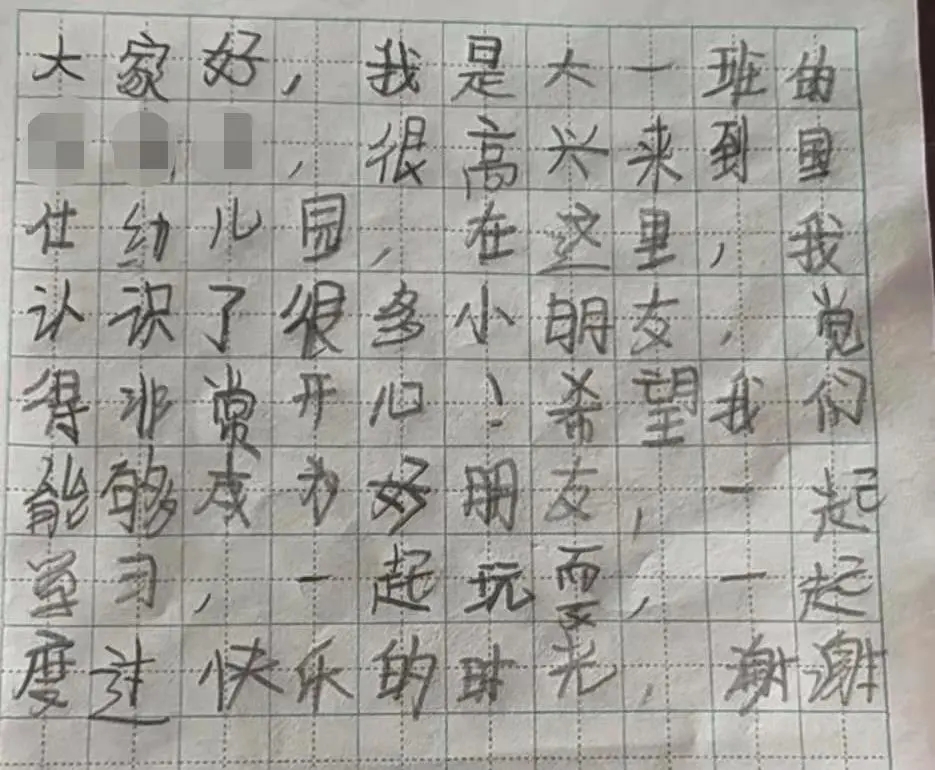 大家好，我是大一班的
，很高兴来到国
仕幼儿园，在这里，我
认识了很多小朋友，觉
得非常开心！希望我们
能够成为好朋友，一起
学习，一起玩耍，一起
度过快乐的时光，谢谢